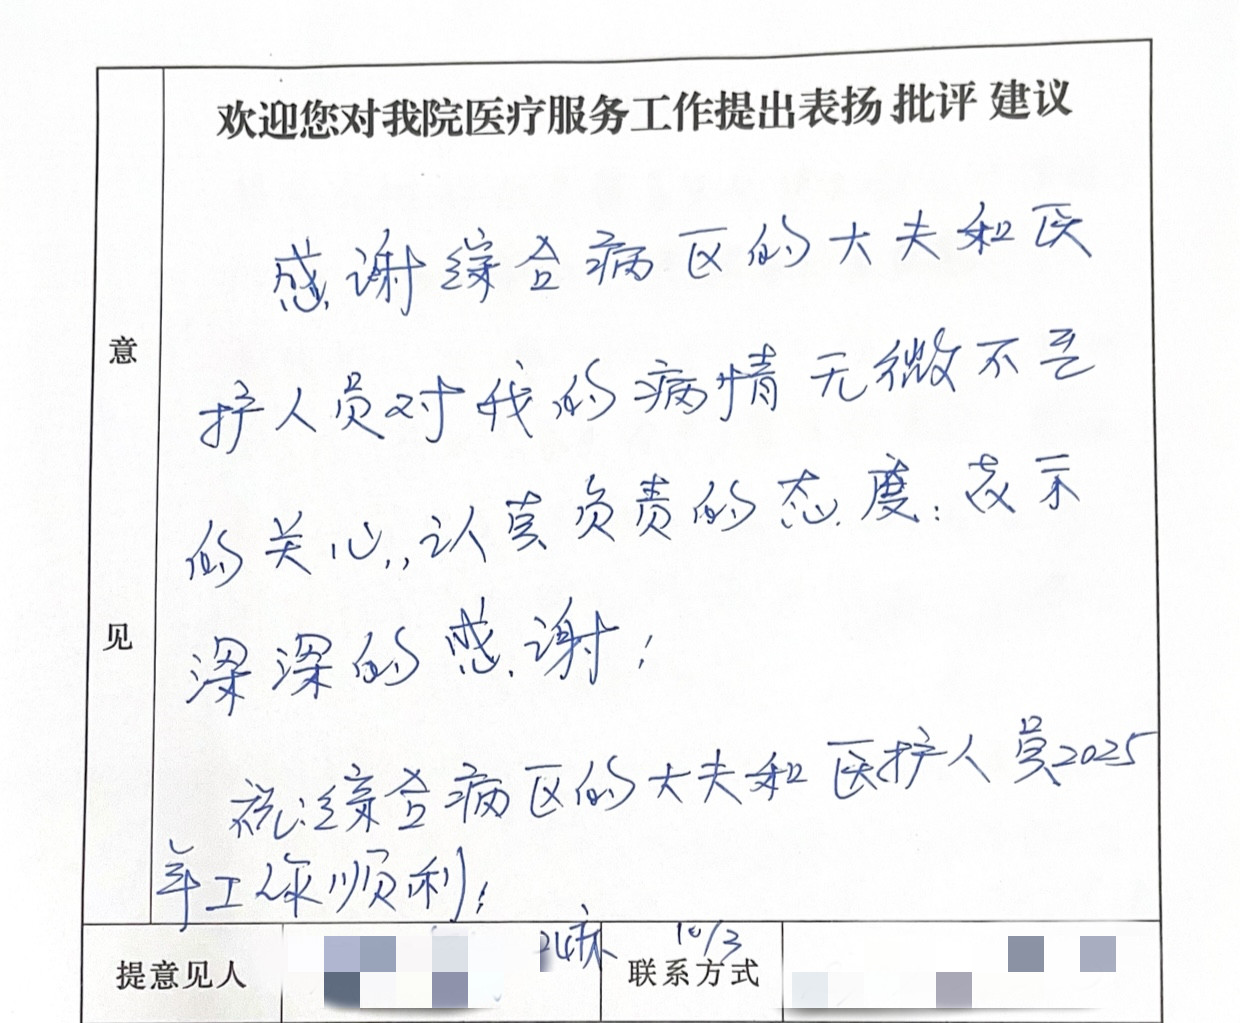 欢迎您对我院医疗服务工作提出表扬 批评 建议
意见
感谢综合病区的大夫和医
护人员对我的病情无微不至
的关心,,认真负责的态度:表示
深深的感谢;
祝:综合病区的大夫和医护人员2025
年工作顺利;
10/3
提意见人
联系方式